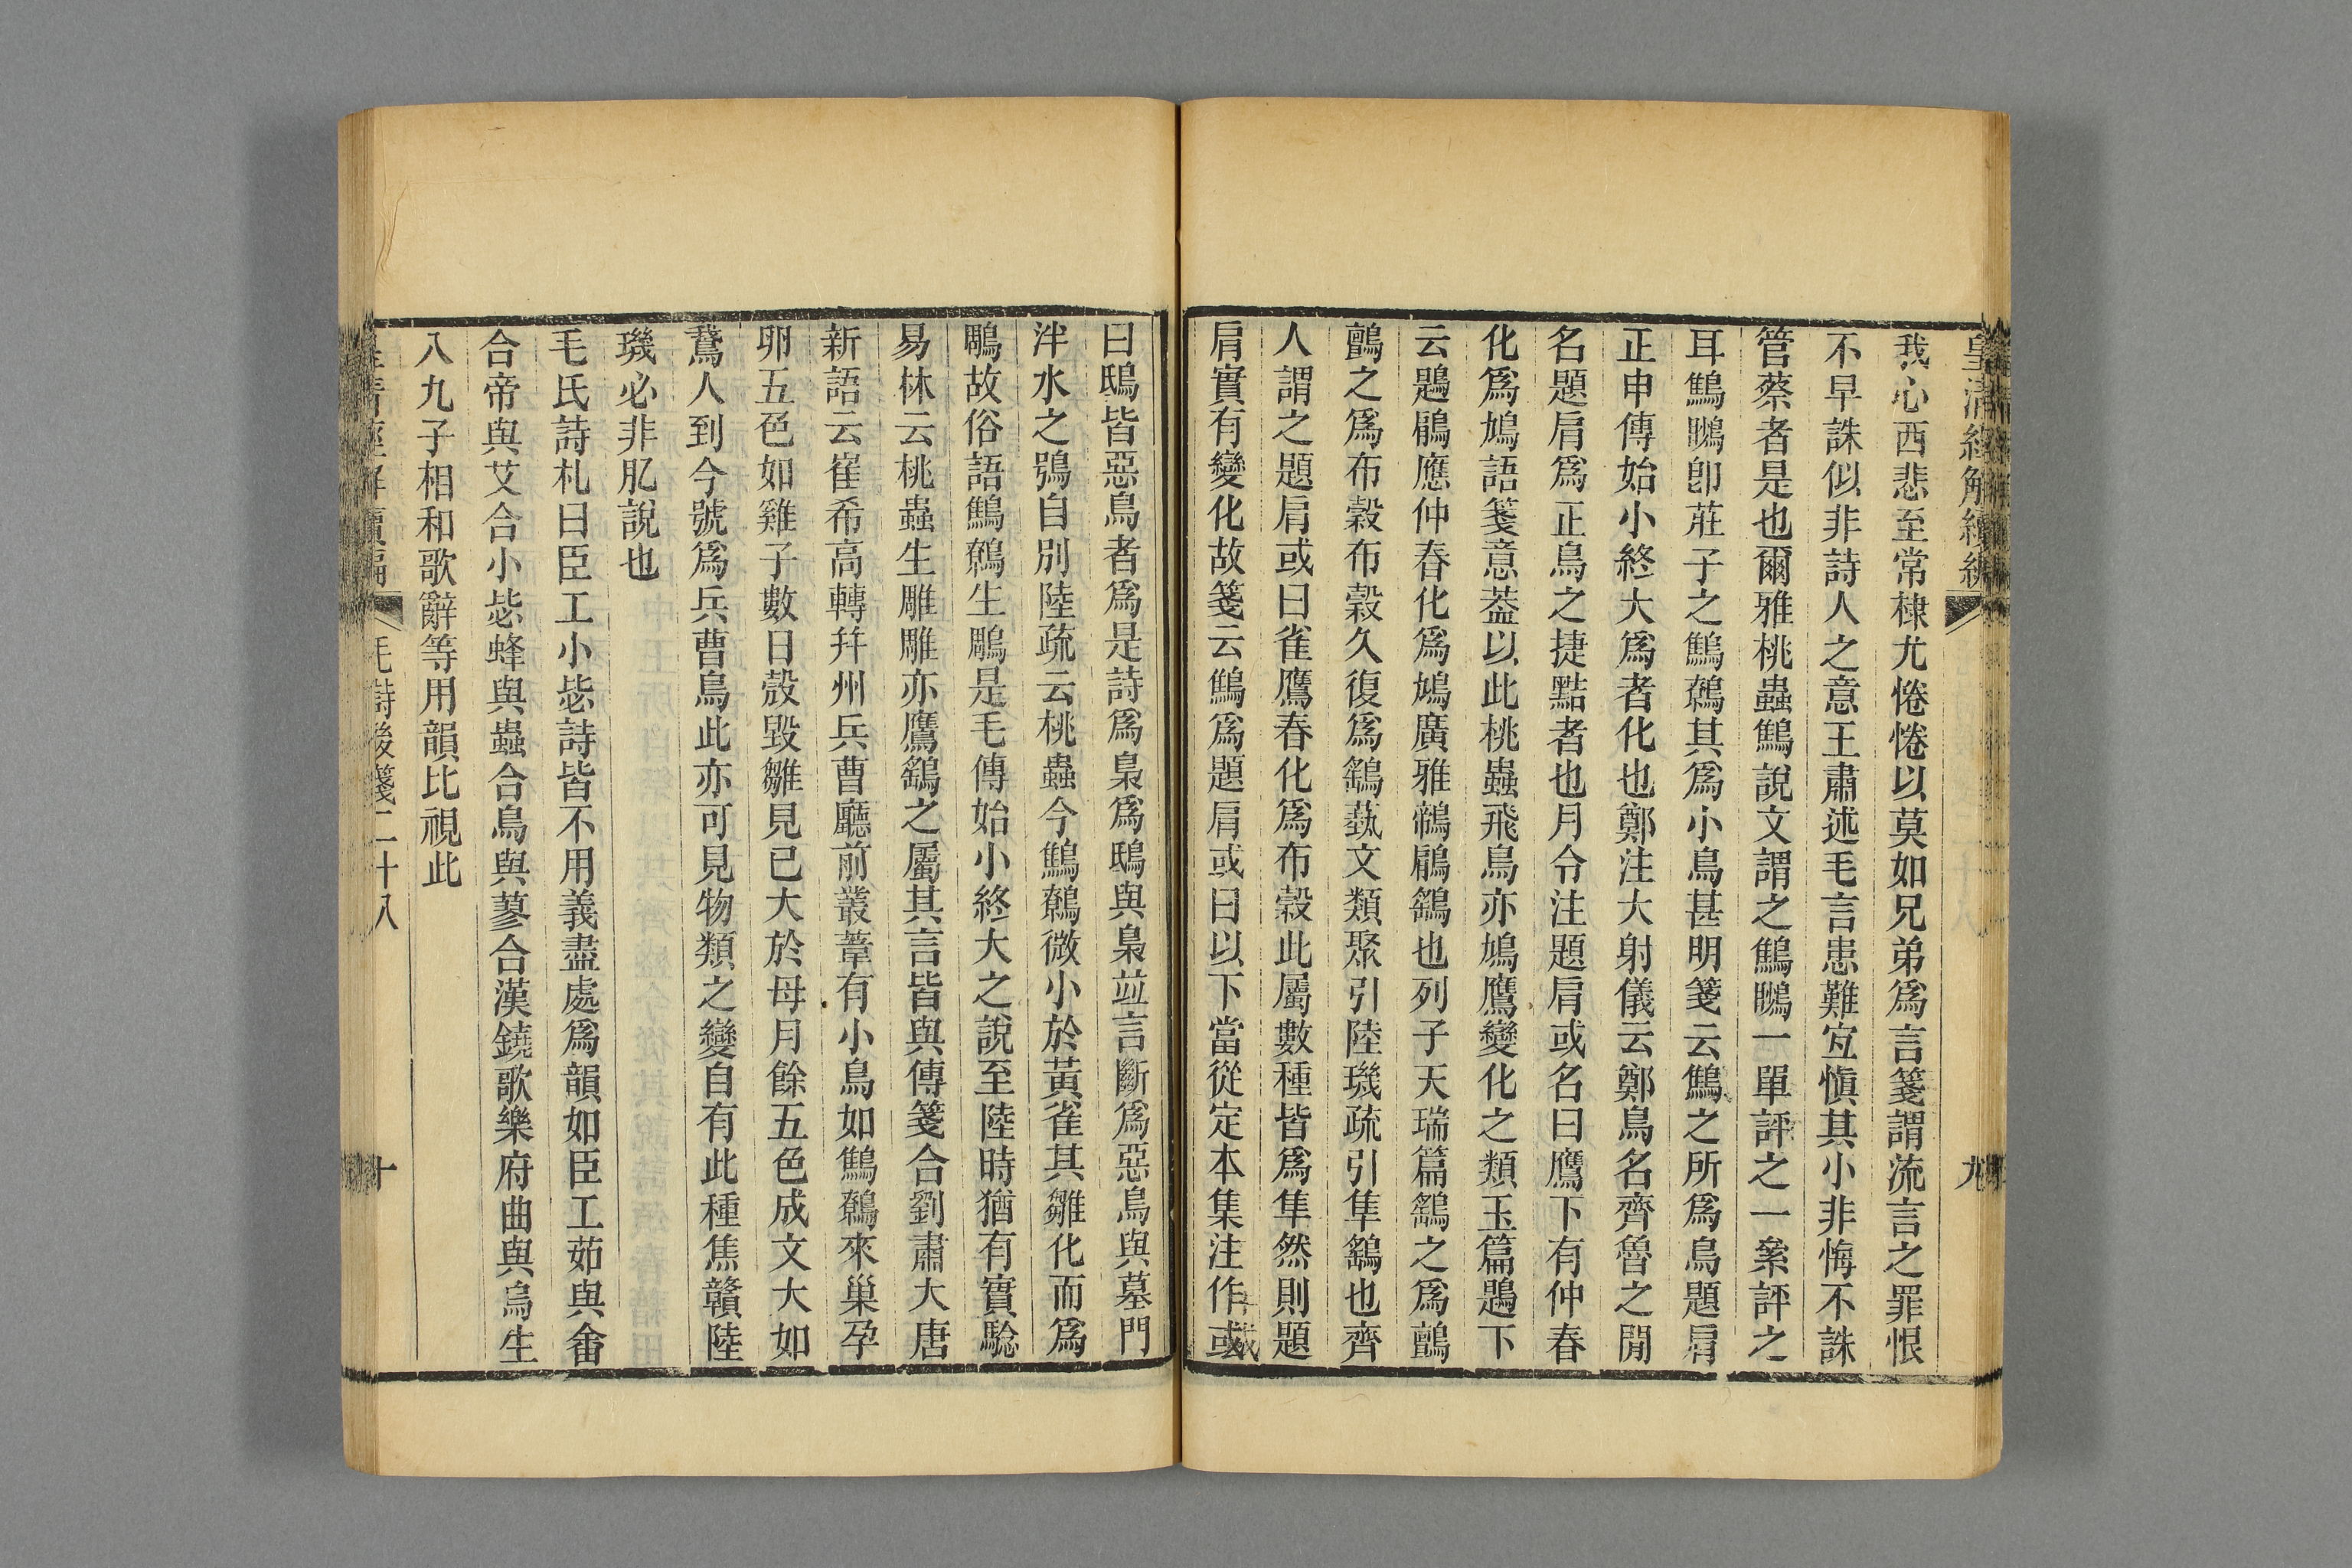 皇清經解續編
九
我心西悲至常棣尤惓惓以莫如兄弟爲言箋謂流言之罪恨
不早誅似非詩人之意王肅述毛言患難宐愼其小非悔不誅
管蔡者是也爾雅桃蟲鷦說文謂之鷦䳟一單評之一絫評之
耳鷦䳟卽莊子之鷦鷯其爲小鳥甚明箋云鷦之所爲鳥題肩
正申傳始小終大爲者化也鄭注大射儀云鄭鳥名齊魯之閒
名題肩爲正鳥之捷黠者也月令注題肩或名曰鷹下有仲春
化爲鳩語箋意葢以此桃蟲飛鳥亦鳩鷹變化之類玉篇鶗下
云鶗鵳應仲春化爲鳩廣雅鷤鵳鷂也列子天瑞篇鷂之爲鸇
鸇之爲布穀布穀久復爲鷂蓺文類聚引陸璣疏引隼鷂也齊
人謂之題肩或曰雀鷹春化爲布穀此屬數種皆爲隼然則題
肩實有變化故箋云鷦爲題肩或曰以下當從定本集注作或
曰鴟皆惡鳥者爲是詩爲梟爲鴟與梟竝言斷爲惡鳥與墓門
泮水之鴞自別陸疏云桃蟲今鷦鷯微小於黃雀其雛化而爲
鵰故俗語鷦鷯生鵰是毛傳始小終大之說至陸時猶有實騐
易林云桃蟲生雕雕亦鷹鷂之屬其言皆與傳箋合劉肅大唐
新語云崔希高轉幷州兵曹廳前叢葦有小鳥如鷦鷯來巢孕
卵五色如雞子數日㱿毀雛見已大於母月餘五色成文大如
鵞人到今號爲兵曹鳥此亦可見物類之變自有此種焦贛陸
璣必非肊說也
毛氏詩札曰臣工小毖詩皆不用義盡處爲韻如臣工茹與畬
合帝與艾合小毖蜂與蟲合鳥與蓼合漢鐃歌樂府曲與烏生
八九子相和歌辭等用韻比視此
毛詩後箋二十八
十